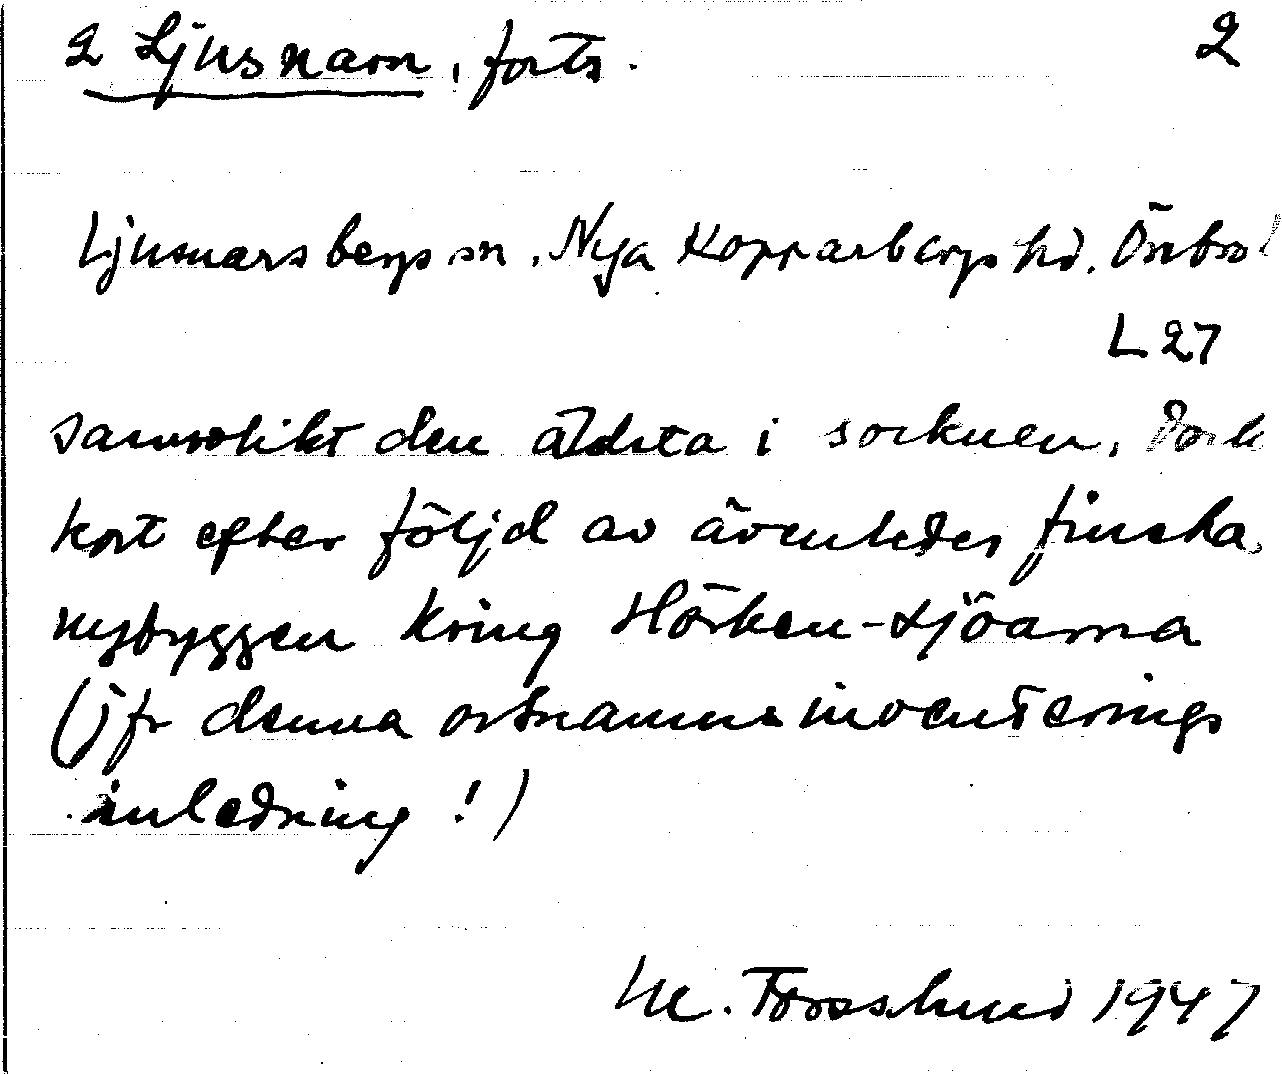 2 Ljusnarn, forts. 2
Ljusnarsbergs sn. Nya Kopparbergs hd. Örebro l
L 27
sannolikt den äldsta i socknen, dock
kort efter följd av ävenledes finska
nybyggen kring Hörken-sjöarna
(jfr denna ortnamnsinventerings
inledning!)
M. Forsslund 1947